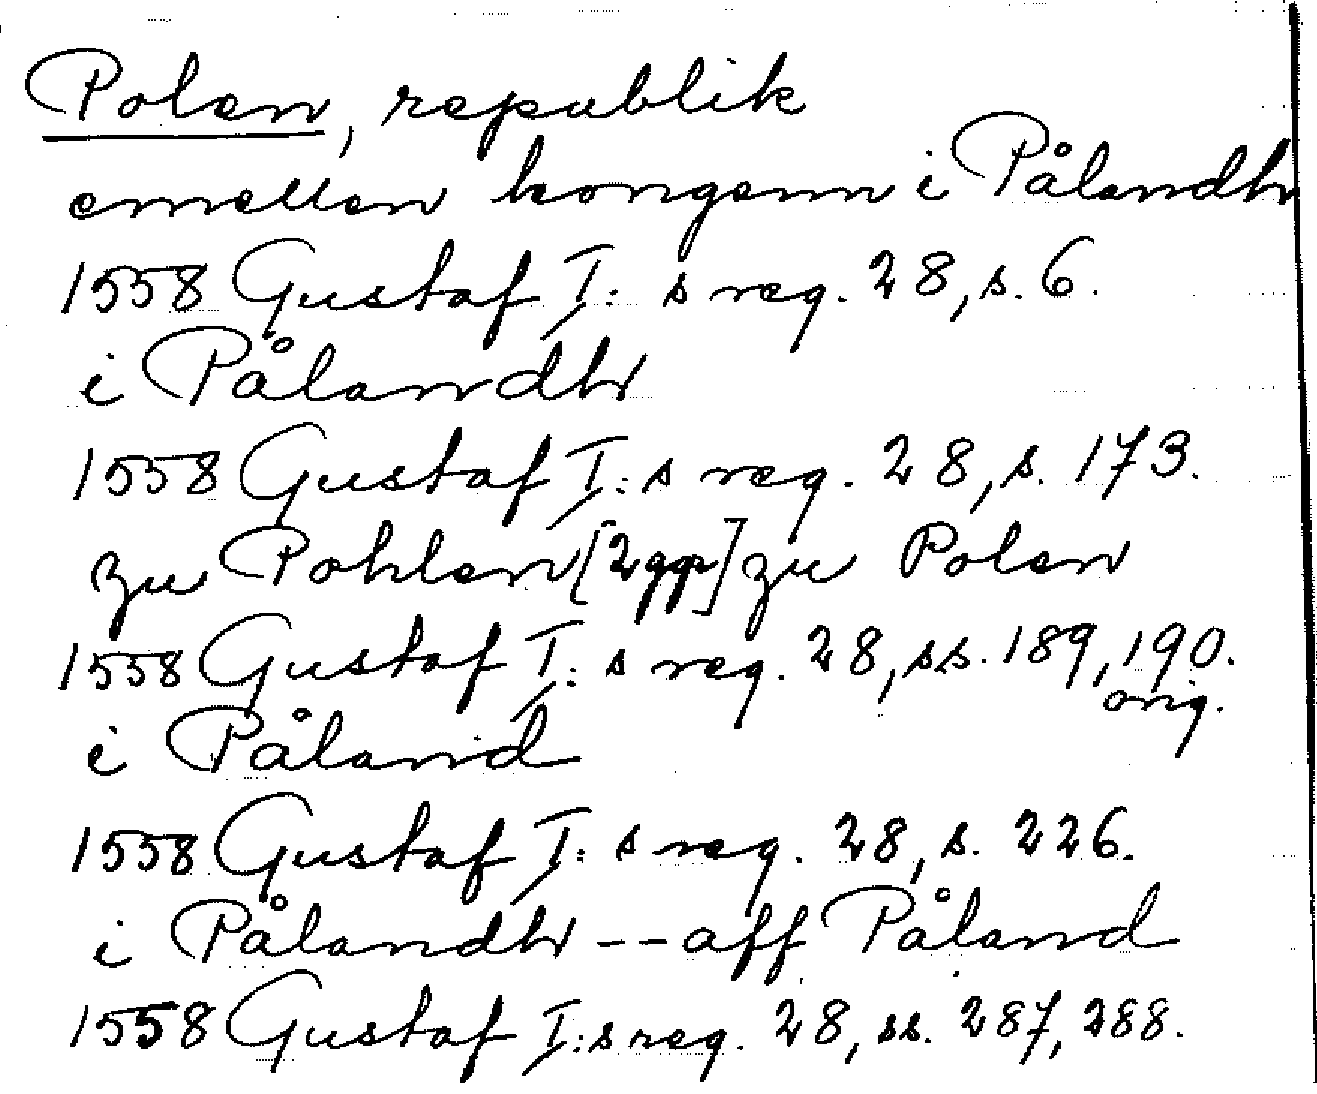 Polen, republik
emellen kongenn i Pålandh
1558 Gustaf I:s reg. 28, s. 6.
i Pålandh
1558 Gustaf I:s reg. 28, s. 173.
zu Pohlen [2 ggr] zu Polen
1558 Gustaf I:s reg. 28, ss. 189, 190.
orig.
i Påland
1558 Gustaf I:s reg. 28, s. 226.
i Pålandh -- aff Påland
1558 Gustaf I:s reg. 28, ss. 287, 288.